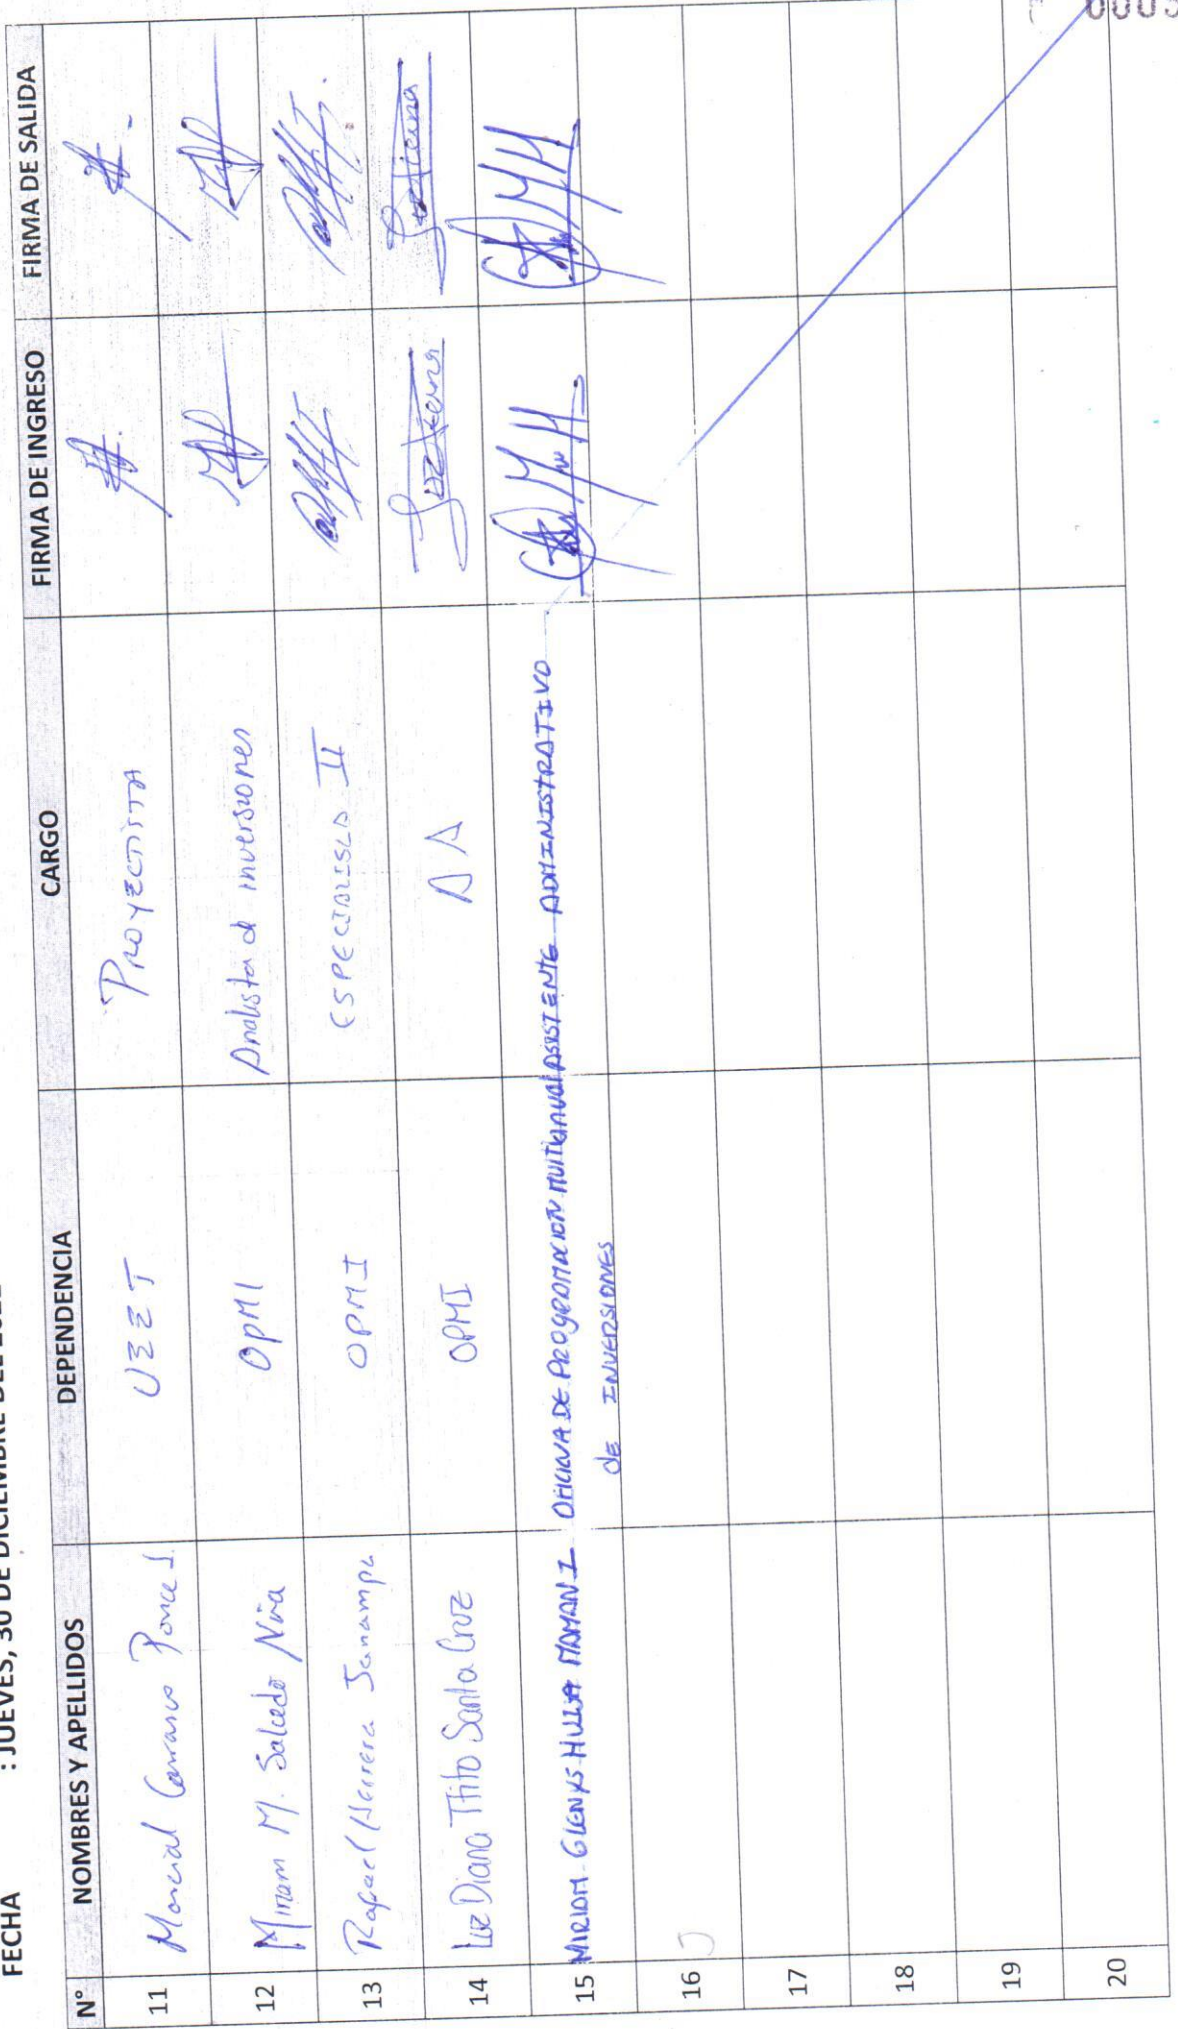 FECHA : JUEVES, 30 DE DICIEMBRE DEL
N° NOMBRES Y APELLIDOS DEPENDENCIA CARGO FIRMA DE INGRESO FIRMA DE SALIDA
11 Marcial Carrasco Ponce J. UEET PROYECTISTA
12 Miriam M. Salcedo Nina OPMI Analista d inversiones
13 Rafael Herrera Janampa OPMI ESPECIALISTA II
14 Luz Diana Ttito Santa Cruz OPMI AA
15 MIRIAM GLENYS HULLA MAMANI OFICINA DE PROGRAMACION MULTIANUAL ASISTENTE ADMINISTRATIVO
de INVERSIONES
16
17
18
19
20